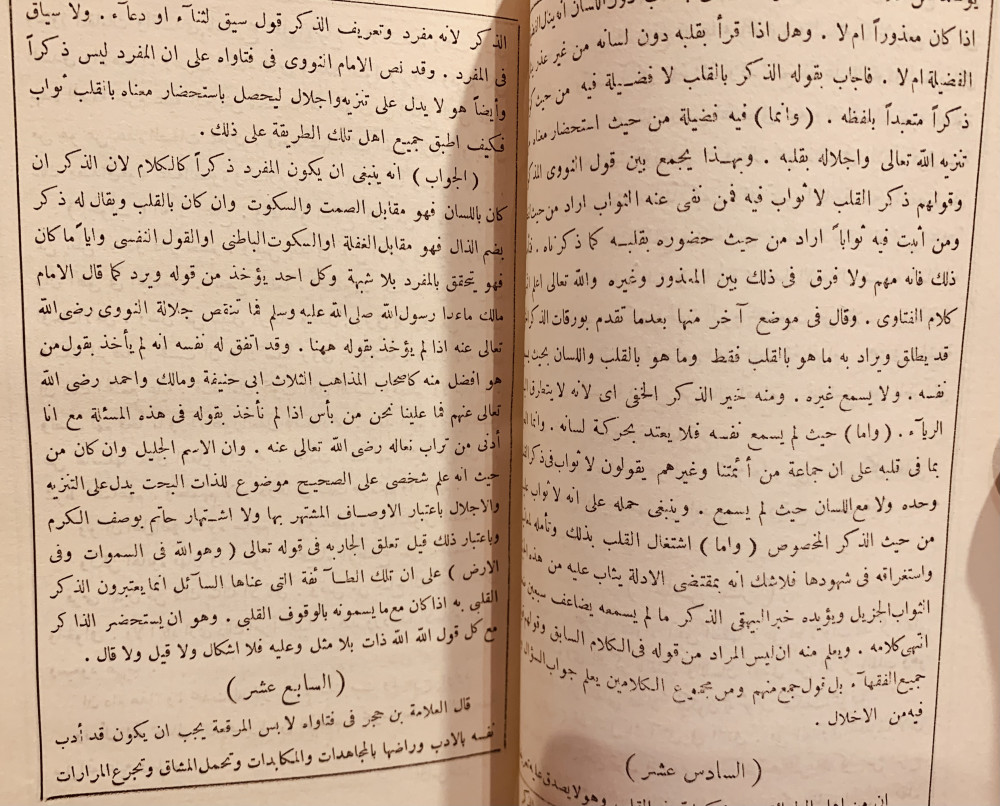 اذا كان معذوراً ام لا . وهل اذا قرأ بقلبه دون لسانه من غير عذر
الفضيلة ام لا . فاجاب بقوله الذكر بالقلب لا فضيلة فيه من حيث
ذكراً متعبداً بلفظه . (وانما) فيه فضيلة من حيث استحضار
تنزيه الله تعالى واجلاله بقلبه . وبهذا يجمع بين قول النووى
وقولهم ذكر القلب لا ثواب فيه فمن نفى عنه الثواب اراد من حيث
ومن أثبت فيه ثواباً اراد من حيث حضوره بقلبه كما ذكرناه .
ذلك فانه مهم ولا فرق فى ذلك بين المعذور وغيره والله تعالى اعلم
كلام الفتاوى . وقال فى موضع آخر منها بعدما تقدم بورقات الذكر
قد يطلق ويراد به ما هو بالقلب فقط وما هو بالقلب واللسان بحيث
نفسه . ولا يسمع غيره . ومنه خير الذكر الخفى اى لانه لا يتطرق
الرياء . (واما) حيث لم يسمع نفسه فلا يعتد بحركة لسانه . وانما
بما فى قلبه على ان جماعة من أئمتنا وغيرهم يقولون لا ثواب فى ذكر
وحده ولا مع اللسان حيث لم يسمع . وينبغى حمله على انه لا ثواب
من حيث الذكر المخصوص (واما) اشتغال القلب بذلك وتأمله
واستغراقه فى شهودها فلاشك انه بمقتضى الادلة يثاب عليه من هذه
الثواب الجزيل ويؤيده خبر البيهقى الذكر ما لم يسمعه يضاعف سبعين
انتهى كلامه . ويعلم منه ان ليس المراد من قوله فى الكلام السابق وقولهم
جميع الفقهآء بل قول جمع منهم ومن مجموع الكلامين يعلم جواب السؤال
فيه من الاخلال .
(السادس عشر)
الذكر لانه مفرد وتعريف الذكر قول سيق لثنآء او دعآء . ولا سياق
فى المفرد . وقد نص الامام النووى فى فتاواه على ان المفرد ليس ذكراً
وأيضاً هو لا يدل على تنزيه واجلال ليحصل باستحضار معناه بالقلب ثواب
فكيف اطبق جميع اهل تلك الطريقة على ذلك .
(الجواب) انه ينبغى ان يكون المفرد ذكراً كالكلام لان الذكر ان
كان باللسان فهو مقابل الصمت والسكوت وان كان بالقلب ويقال له ذكر
بضم الذال فهو مقابل الغفلة او السكوت الباطنى او القول النفسى واياً ما كان
فهو يتحقق بالمفرد بلا شبهة وكل احد يؤخذ من قوله ويرد كما قال الامام
مالك ماعدا رسول الله صلى الله عليه وسلم فما تنقص جلالة النووى رضى الله
تعالى عنه اذا لم يؤخذ بقوله ههنا . وقد اتفق له نفسه انه لم يأخذ بقول من
هو افضل منه كاصحاب المذاهب الثلاث ابى حنيفة ومالك واحمد رضى الله
تعالى عنهم فما علينا نحن من بأس اذا لم نأخذ بقوله فى هذه المسئلة مع انا
أدنى من تراب نعاله رضى الله تعالى عنه . وان الاسم الجليل وان كان من
حيث انه علم شخصى على الصحيح موضوع للذات البحت يدل على التنزيه
والاجلال باعتبار الاوصاف المشتهر بها ولا اشتهار حاتم بوصف الكرم
وباعتبار ذلك قيل تعلق الجار به فى قوله تعالى (وهو الله فى السموات وفى
الارض) على ان تلك الطآئفة التى عناها السآئل انما يعتبرون الذكر
القلبى به اذا كان مع ما يسمونه بالوقوف القلبى . وهو ان يستحضر الذاكر
مع كل قول الله الله ذات بلا مثل وعليه فلا اشكال ولا قيل ولا قال .
(السابع عشر)
قال العلامة بن حجر فى فتاواه لابس المرقعة يجب ان يكون قد أدب
نفسه بالادب وراضها بالمجاهدات والمكابدات وتحمل المشاق وتجرع المرارات